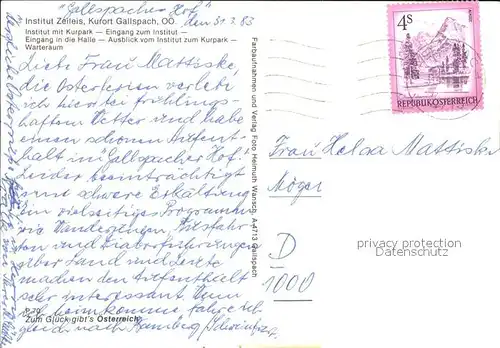 "Gallspacher Hof"
Institut Zeileis, Kurort Gallspach, OÖ.
den 31.3.83
Institut mit Kurpark — Eingang zum Institut —
Eingang in die Halle — Ausblick vom Institut zum Kurpark —
Warteraum
Liebe Frau Mattiske,
die Osterferien verlebe
ich hier bei frühlings-
haftem Wetter und habe
einen schönen Aufent-
halt im Gallspacher Hof.
Leider beeinträchtigt
eine schwere Erkältung
ein vielseitiges Programm
wie Wanderungen, Busfahr-
ten und Diavorführungen
über Land und Leute
machen den Aufenthalt
sehr interessant. Wenn
ich heimkomme fahre ich
gleich nach Bamberg
Zum Glück gibt's Österreich
Farbaufnahmen und Verlag Foto Helmuth Wansch, A-4713 Gallspach
4S
REPUBLIK ÖSTERREICH
Frau Helga Mattiske
D
1000
privacy protection
Datenschutz